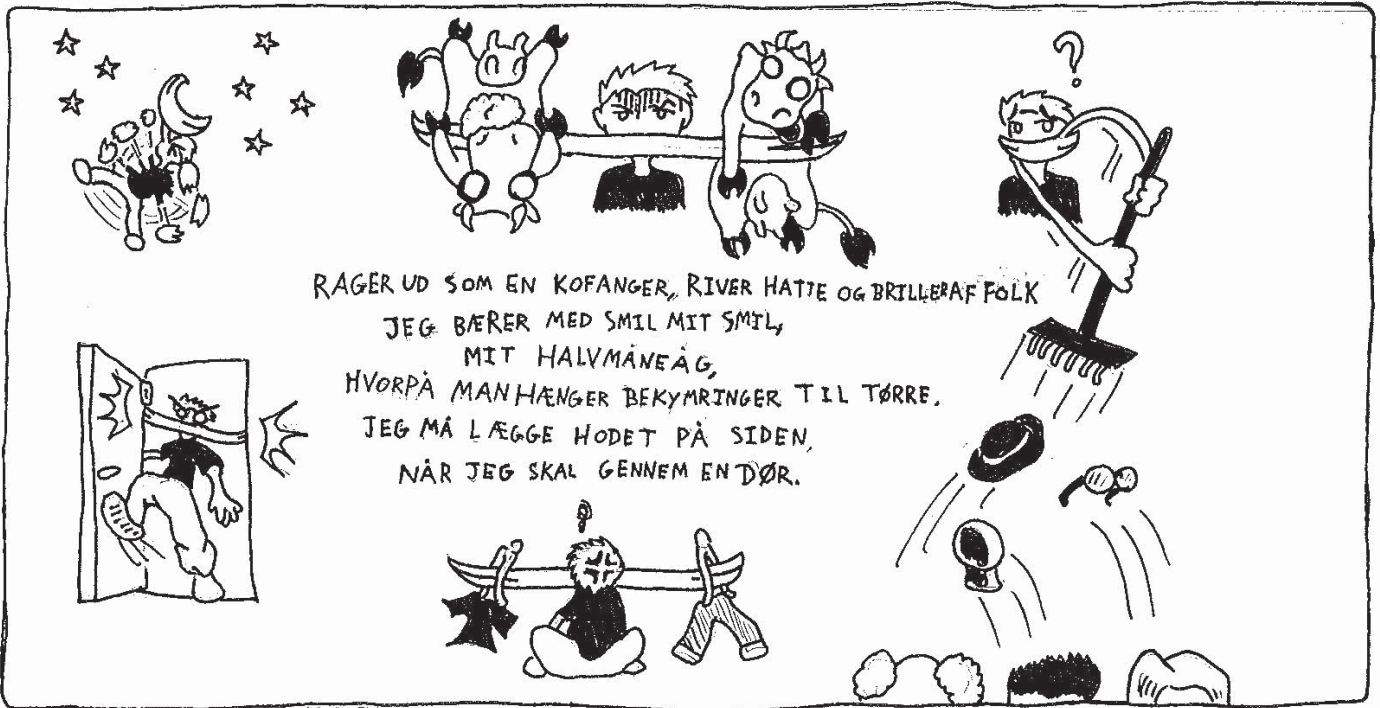 ?
RAGER UD SOM EN KOFANGER, RIVER HATTE OG BRILLER AF FOLK
JEG BÆRER MED SMIL MIT SMIL,
MIT HALVMÅNEÅG,
HVORPÅ MAN HÆNGER BEKYMRINGER TIL TØRRE.
JEG MÅ LÆGGE HODET PÅ SIDEN,
NÅR JEG SKAL GENNEM EN DØR.